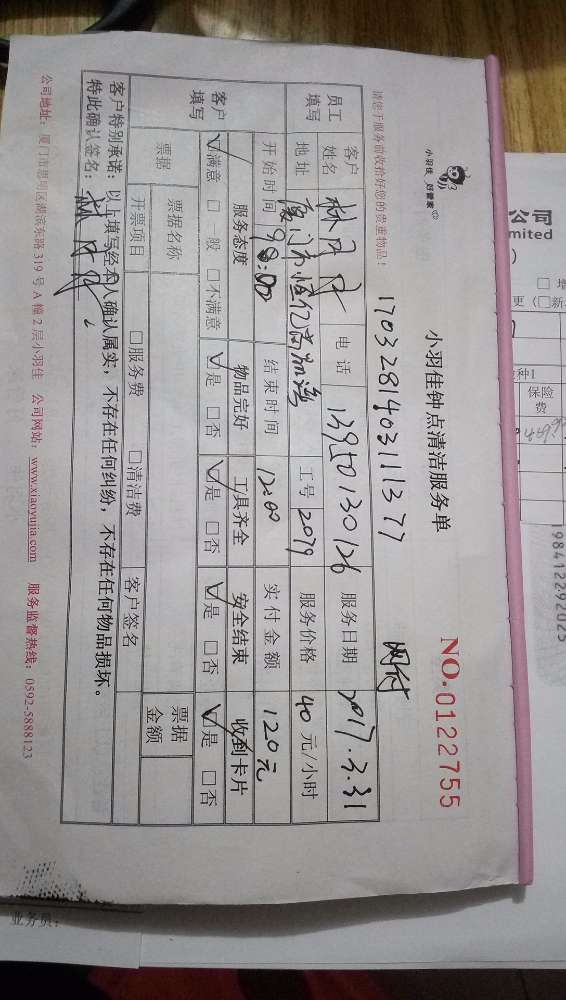 小羽佳 好管家
小羽佳钟点清洁服务单
NO.0122755
请您于服务前收拾好您的贵重物品！
1703281403111377
网付
员工填写
客户姓名
电话 13950130126
服务日期 2017.3.31
地址 厦门市
工号 2079
服务价格 40 元/小时
开始时间 9:00
结束时间 12:00
实付金额 120元
客户填写
服务态度 物品完好 工具齐全 安全结束 收到卡片
☑满意 □一般 □不满意 ☑是 □否 ☑是 □否 ☑是 □否 ☑是 □否
票据
票据名称
票据金额
开票项目 □服务费 □清洁费 客户签名
客户特别承诺：以上填写经本人确认属实，不存在任何纠纷，不存在任何物品损坏。
特此确认签名：
公司地址：厦门市思明区湖滨东路 319 号 A 幢 2 层小羽佳 公司网站：www.xiaoyujia.com 服务监督热线：0592-5888123
公司
mited
保险费
198412292025
业务员：